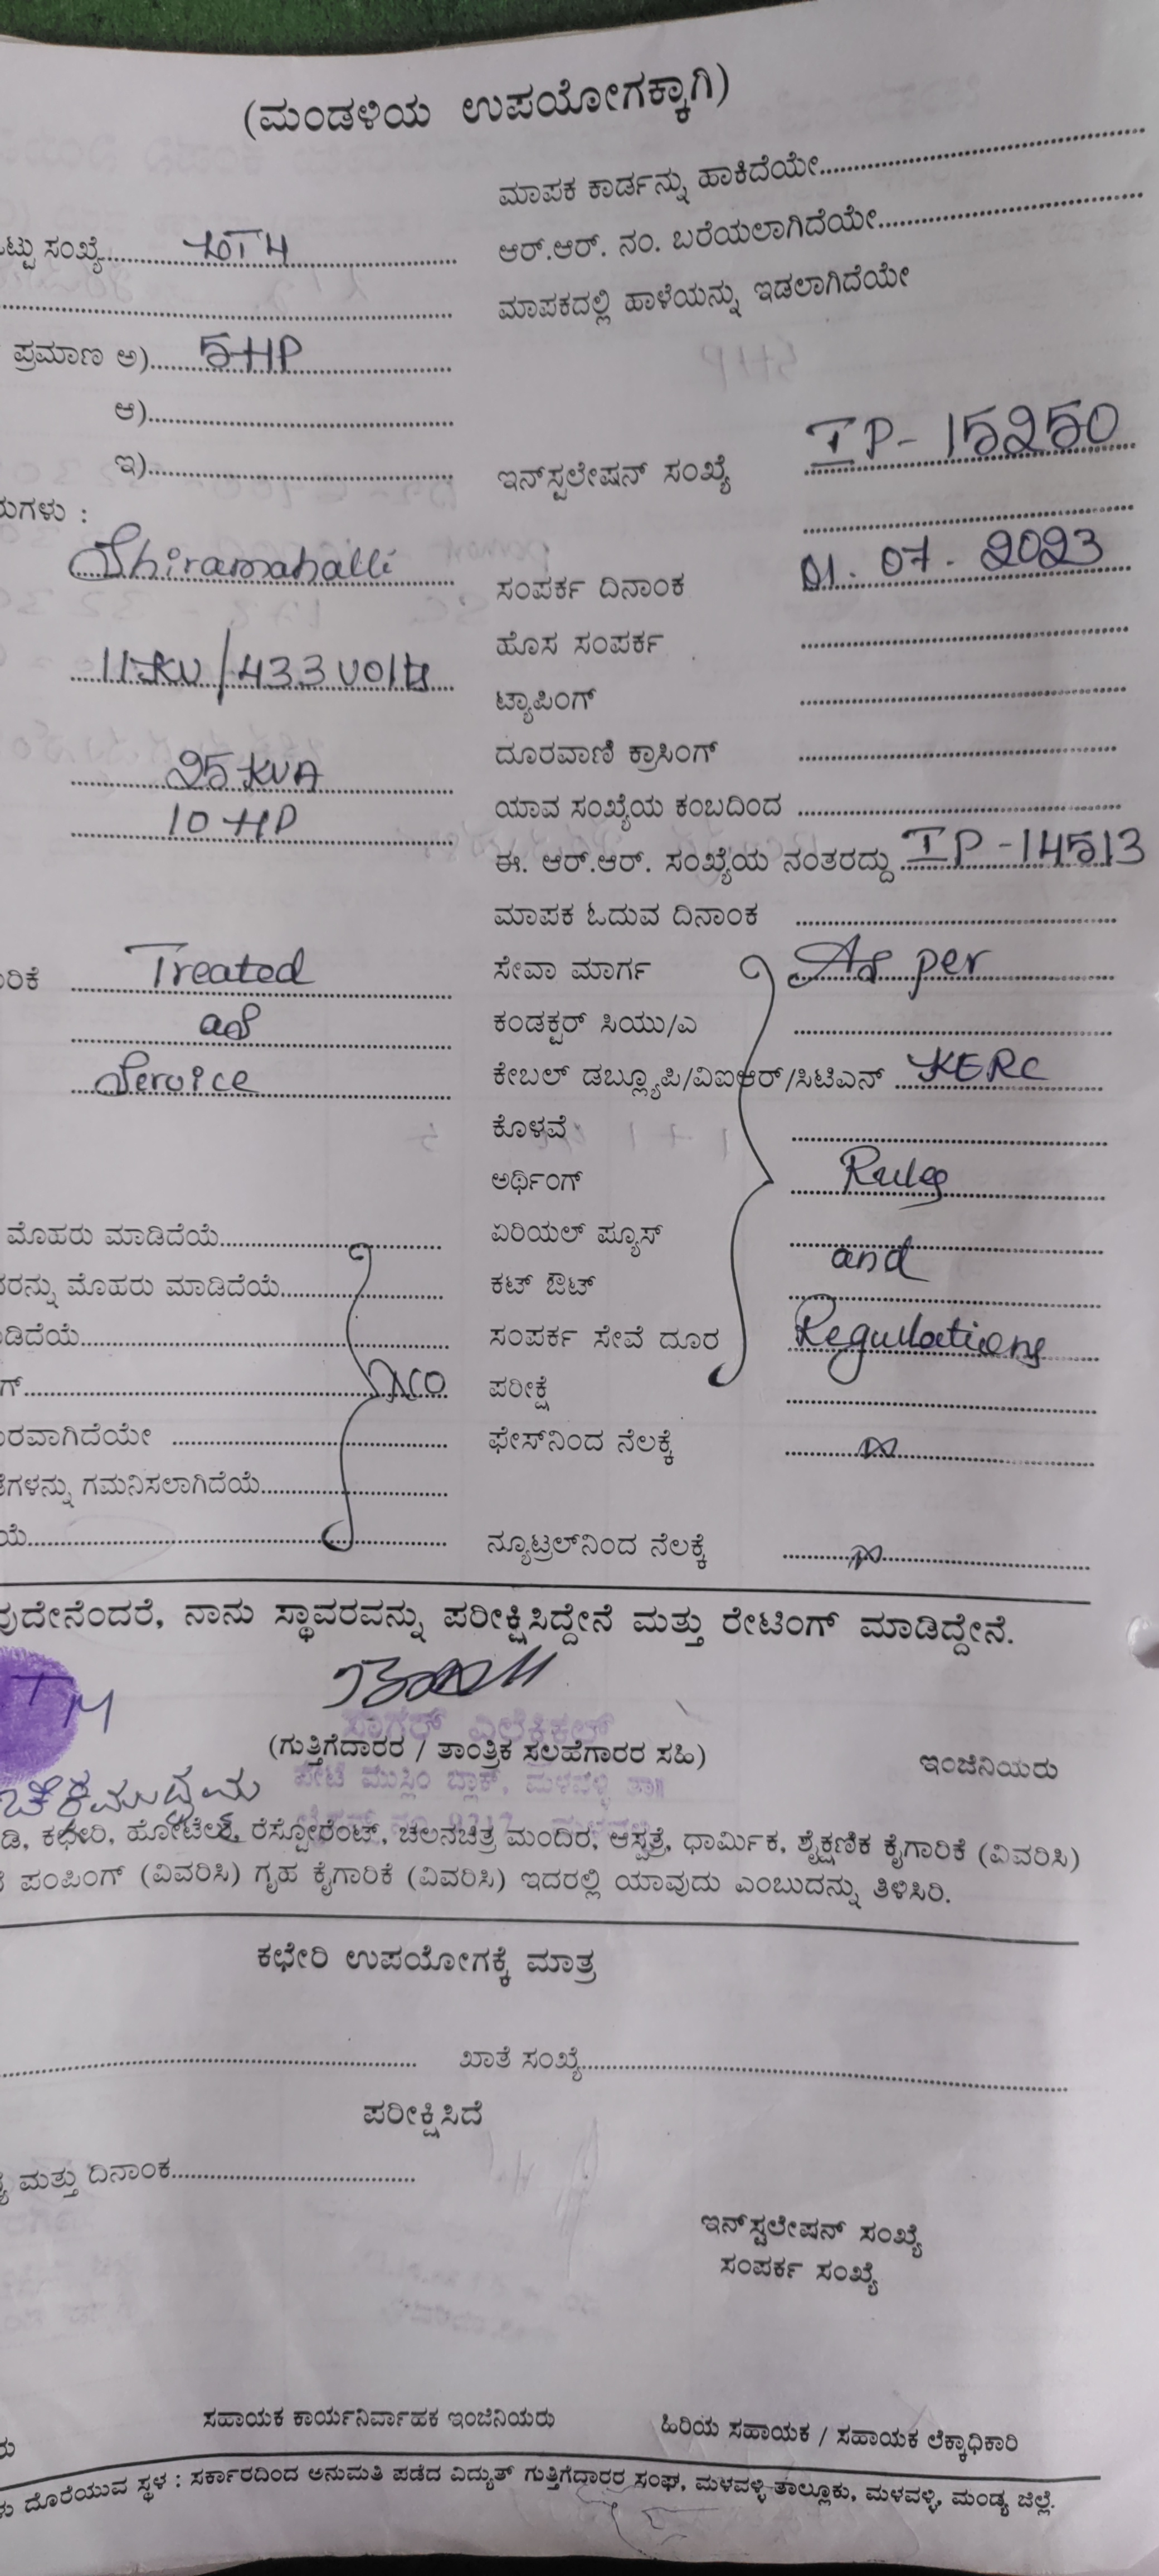 (ಮಂಡಳಿಯ ಉಪಯೋಗಕ್ಕಾಗಿ)
ಮಾಪಕ ಕಾರ್ಡನ್ನು ಹಾಕಿದೆಯೇ
ಟ್ಟು ಸಂಖ್ಯೆ
ಆರ್.ಆರ್. ನಂ. ಬರೆಯಲಾಗಿದೆಯೇ
ಮಾಪಕದಲ್ಲಿ ಹಾಳೆಯನ್ನು ಇಡಲಾಗಿದೆಯೇ
ಪ್ರಮಾಣ ಅ) 5HP
ಆ)
ಇ)
ಇನ್‌ಸ್ಪಲೇಷನ್ ಸಂಖ್ಯೆ IP-15250
ರುಗಳು :
Shiramahalli
ಸಂಪರ್ಕ ದಿನಾಂಕ 01.07.2023
ಹೊಸ ಸಂಪರ್ಕ
11KV/433 volts
ಟ್ಯಾಪಿಂಗ್
ದೂರವಾಣಿ ಕ್ರಾಸಿಂಗ್
25 KVA
ಯಾವ ಸಂಖ್ಯೆಯ ಕಂಬದಿಂದ
10 HP
ಈ. ಆರ್.ಆರ್. ಸಂಖ್ಯೆಯ ನಂತರದ್ದು IP-14513
ಮಾಪಕ ಓದುವ ದಿನಾಂಕ
ರಿಕೆ Treated
ಸೇವಾ ಮಾರ್ಗ As per
as
ಕಂಡಕ್ಟರ್ ಸಿಯು/ಎ
Service
ಕೇಬಲ್ ಡಬ್ಲ್ಯೂಪಿ/ವಿಐಆರ್/ಸಿಟಿಎನ್ KERC
ಕೊಳವೆ
ಅರ್ಥಿಂಗ್ Rules
ಮೊಹರು ಮಾಡಿದೆಯೆ
ಏರಿಯಲ್ ಫ್ಯೂಸ್ and
ರನ್ನು ಮೊಹರು ಮಾಡಿದೆಯೆ
ಕಟ್ ಔಟ್
ಡಿದೆಯೆ
ಸಂಪರ್ಕ ಸೇವೆ ದೂರ Regulations
ಗ್
ಪರೀಕ್ಷೆ
ರವಾಗಿದೆಯೇ
ಫೇಸ್‌ನಿಂದ ನೆಲಕ್ಕೆ ∞
ಗಳನ್ನು ಗಮನಿಸಲಾಗಿದೆಯೆ
ಯೆ
ನ್ಯೂಟ್ರಲ್‌ನಿಂದ ನೆಲಕ್ಕೆ ∞
ವುದೇನೆಂದರೆ, ನಾನು ಸ್ಥಾವರವನ್ನು ಪರೀಕ್ಷಿಸಿದ್ದೇನೆ ಮತ್ತು ರೇಟಿಂಗ್ ಮಾಡಿದ್ದೇನೆ.
ಸಾಗರ್ ಎಲೆಕ್ಟ್ರಿಕಲ್
(ಗುತ್ತಿಗೆದಾರರ / ತಾಂತ್ರಿಕ ಸಲಹೆಗಾರರ ಸಹಿ)
ಇಂಜಿನಿಯರು
ಪೇಟೆ ಮುಸ್ಲಿಂ ಬ್ಲಾಕ್, ಮಳವಳ್ಳಿ ತಾ॥
ಡಿ, ಕಛೇರಿ, ಹೋಟೆಲ್, ರೆಸ್ಟೋರೆಂಟ್, ಚಲನಚಿತ್ರ ಮಂದಿರ, ಆಸ್ಪತ್ರೆ, ಧಾರ್ಮಿಕ, ಶೈಕ್ಷಣಿಕ ಕೈಗಾರಿಕೆ (ವಿವರಿಸಿ)
ಪಂಪಿಂಗ್ (ವಿವರಿಸಿ) ಗೃಹ ಕೈಗಾರಿಕೆ (ವಿವರಿಸಿ) ಇದರಲ್ಲಿ ಯಾವುದು ಎಂಬುದನ್ನು ತಿಳಿಸಿರಿ.
ಕಛೇರಿ ಉಪಯೋಗಕ್ಕೆ ಮಾತ್ರ
ಖಾತೆ ಸಂಖ್ಯೆ
ಪರೀಕ್ಷಿಸಿದೆ
ಮತ್ತು ದಿನಾಂಕ
ಇನ್‌ಸ್ಟಲೇಷನ್ ಸಂಖ್ಯೆ
ಸಂಪರ್ಕ ಸಂಖ್ಯೆ
ಸಹಾಯಕ ಕಾರ್ಯನಿರ್ವಾಹಕ ಇಂಜಿನಿಯರು
ಹಿರಿಯ ಸಹಾಯಕ / ಸಹಾಯಕ ಲೆಕ್ಕಾಧಿಕಾರಿ
ರು
ಳು ದೊರೆಯುವ ಸ್ಥಳ : ಸರ್ಕಾರದಿಂದ ಅನುಮತಿ ಪಡೆದ ವಿದ್ಯುತ್ ಗುತ್ತಿಗೆದಾರರ ಸಂಘ, ಮಳವಳ್ಳಿ ತಾಲ್ಲೂಕು, ಮಳವಳ್ಳಿ, ಮಂಡ್ಯ ಜಿಲ್ಲೆ.